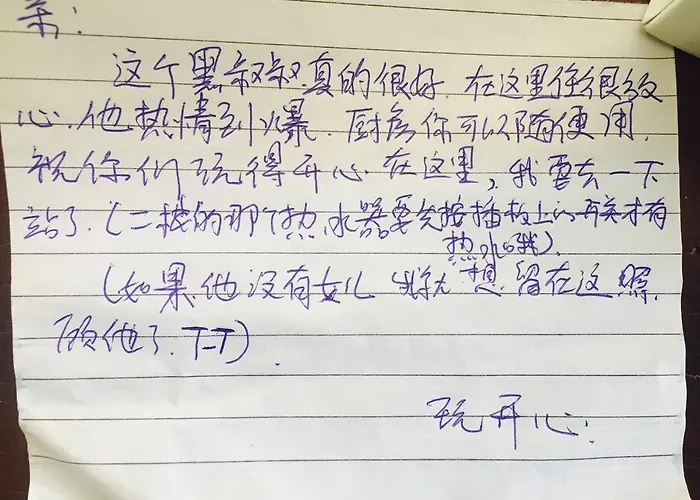 亲：
这个黑叔叔真的很好 在这里住很放
心.他热情到爆. 厨房你可以随便用.
祝你们玩得开心 在这里，我要去一下
站了.（二楼的那个热水器要先按插板上的开关才有
热水哦）.
（如果他没有女儿 我就想留在这照
顾他了. T-T）.
玩开心.